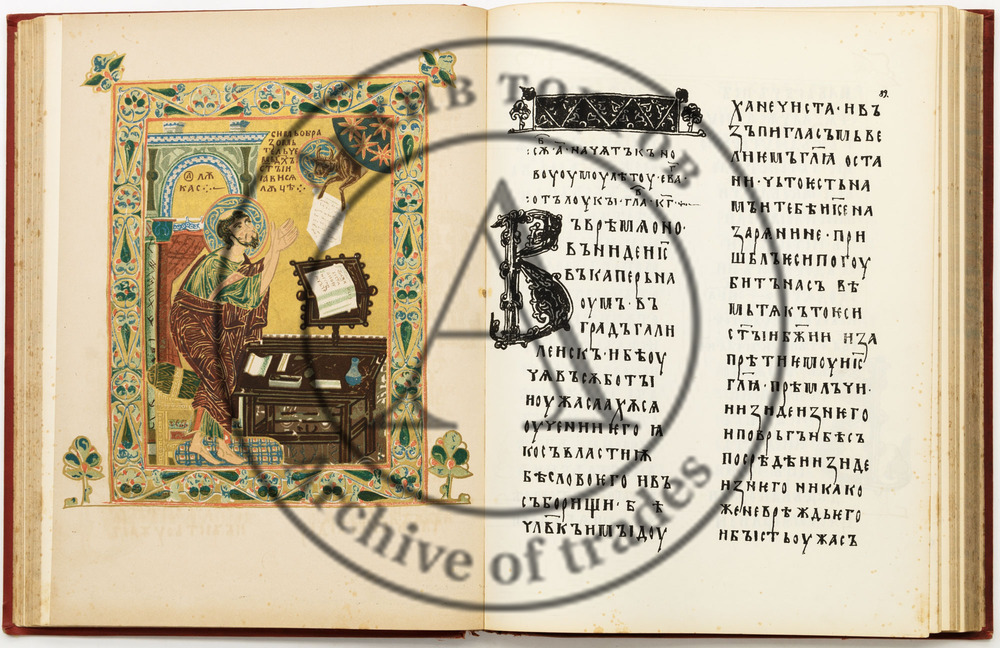 СИМЬ ОБРА
ЗОМЬ
ТЕЛЬЧЕ
МЬ ДХЪ
СТЫИ
ꙖВИСѦ
ЛѪЦѢ
Ⓐ ЛѪ
КАС
89.
:сѫ҃·а·начѧтъкъ но
воуоумоу лѣтоу·ева·
:отъ лоукы·гла·кг҃·
Въ врѣмѧ оно·
въниде ис҃
въ каперьна
оумъ· въ
градъ гали
леискъ· и бѣ оу
чѧ въ сѫботы
и оужасаахѫсѧ
оучении ѥго ꙗ
ко съ властиѭ
бѣ слово ѥго и въ
съборищи· бѣ
чл҃вкъ имы доу
ха нечиста· и въ
зъпи гласъмь ве
лиѥмь гл҃ѧ оста
ни· чьто ѥсть на
мъ и тебѣ ис҃е на
зарѧнине· при
шьлъ ѥси погоу
битъ насъ вѣ
мь тѧ къто ѥси
ст҃ыи б҃жии и за
прѣти ѥмоу ис҃
гл҃ѧ· прѣмлъчи·
и изиде из него
и повръгъ и бѣсъ
посрѣдѣ и изиде
из него никако
же не врѣждь ѥго
и бысть оужасъ
Archive of trades